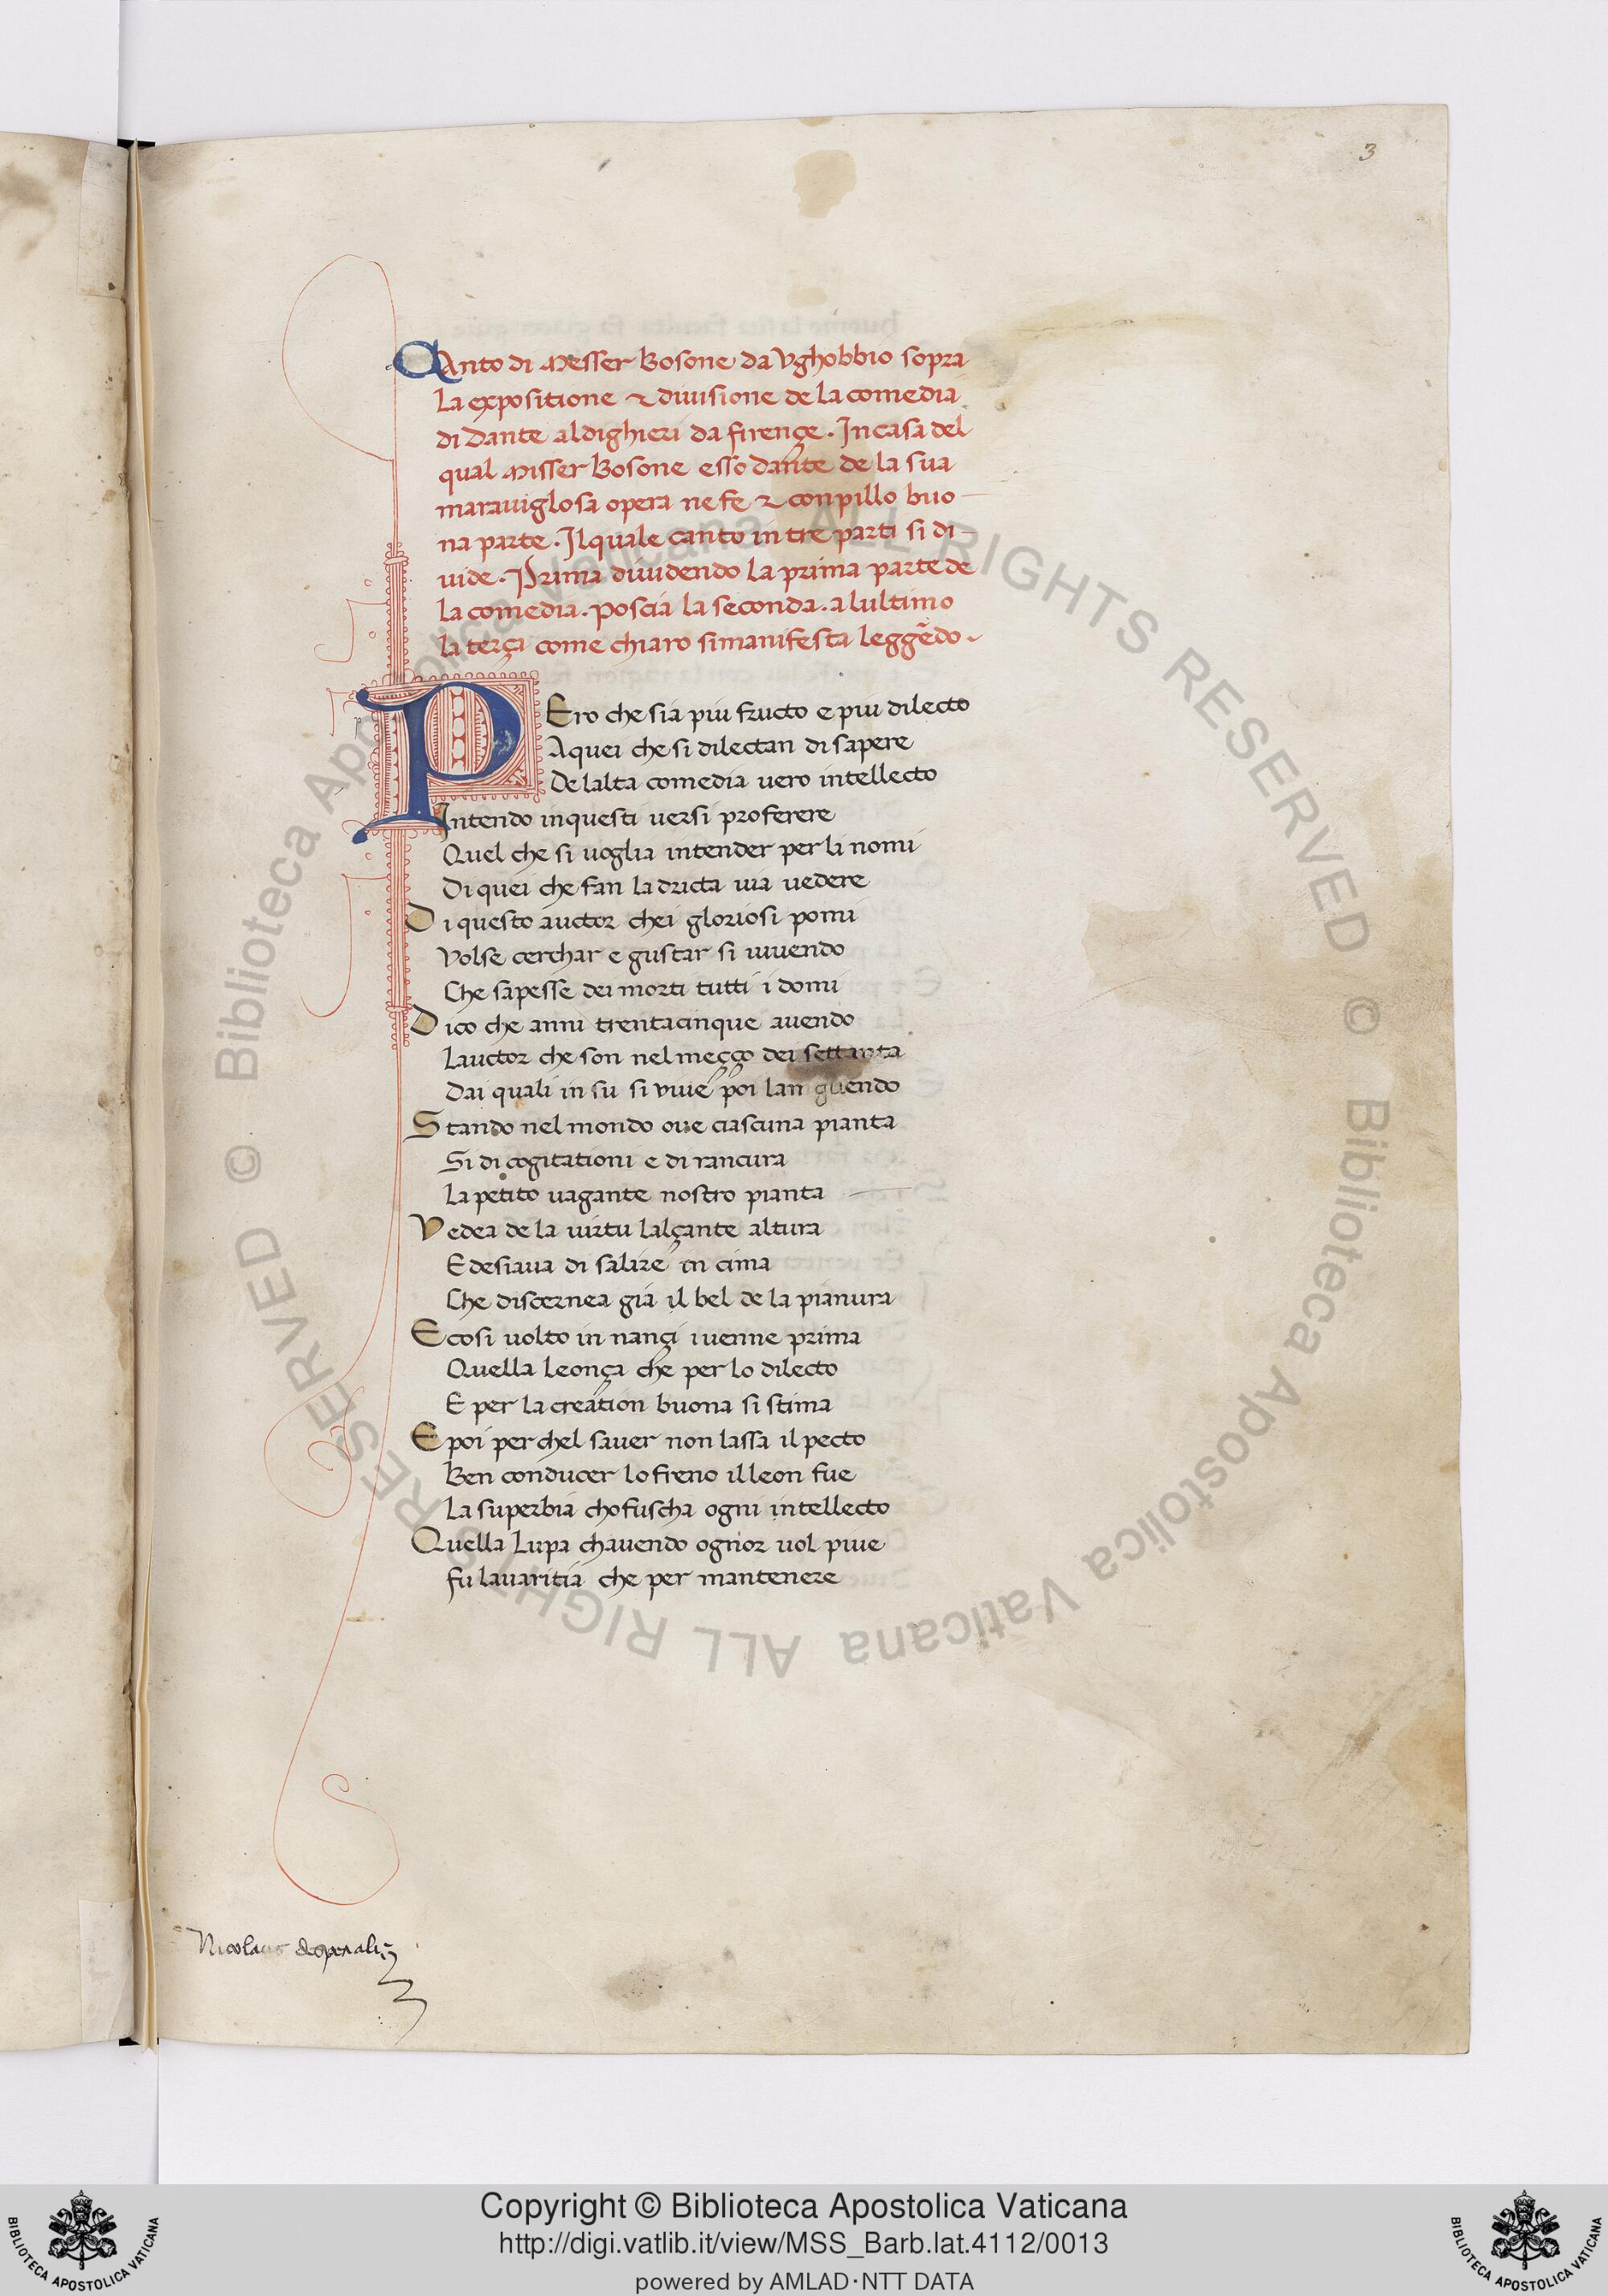 3
CAnto di Messer Bosone da Vghobbio sopra
La expositione & diuisione de la comedia
di Dante aldighieri da firençe. In casa del
qual Misser Bosone esso dante de la sua
marauiglosa opera ne fe & conpillo buo
na parte. Il quale canto in tre parti si di
uide. Prima diuidendo la prima parte de
la comedia. poscia la seconda. a lultimo
la terça come chiaro si manifesta leggẽdo.
PEro che sia piu fructo e piu dilecto
A quei che si dilectan di sapere
De lalta comedia vero intellecto
Intendo in questi uersi proferere
Quel che si uoglia intender per li nomi
Di quei che fan la dricta uia uedere
Di questo auctor chei gloriosi pomi
Volse cerchar e gustar si uiuendo
Che sapesse dei morti tutti i domi
Dico che anni trentacinque auendo
Lauctor che son nel meçço dei settanta
Dai quali in su si viue poi languendo
Stando nel mondo oue ciascuna pianta
Si di cogitationi e di rancura
La petito uagante nostro pianta
Vedea de la uirtu lalçante altura
E desiaua di salire in cima
Che discernea già il bel de la pianura
E cosi uolto in nançi i uenne prima
Quella leonça che per lo dilecto
E per la creation buona si stima
E poi per chel sauer non lassa il pecto
Ben conducer lo freno il leon fue
La superbia chofuscha ogni intellecto
Quella Lupa chauendo ognor uol piue
fu lauaritia che per mantenere
Nicolaus
© Biblioteca Apostolica Vaticana ALL RIGHTS RESERVED
© Biblioteca Apostolica Vaticana ALL RIGHTS RESERVED
Copyright © Biblioteca Apostolica Vaticana
http://digi.vatlib.it/view/MSS_Barb.lat.4112/0013
powered by AMLAD·NTT DATA
BIBLIOTECA APOSTOLICA VATICANA
BIBLIOTECA APOSTOLICA VATICANA